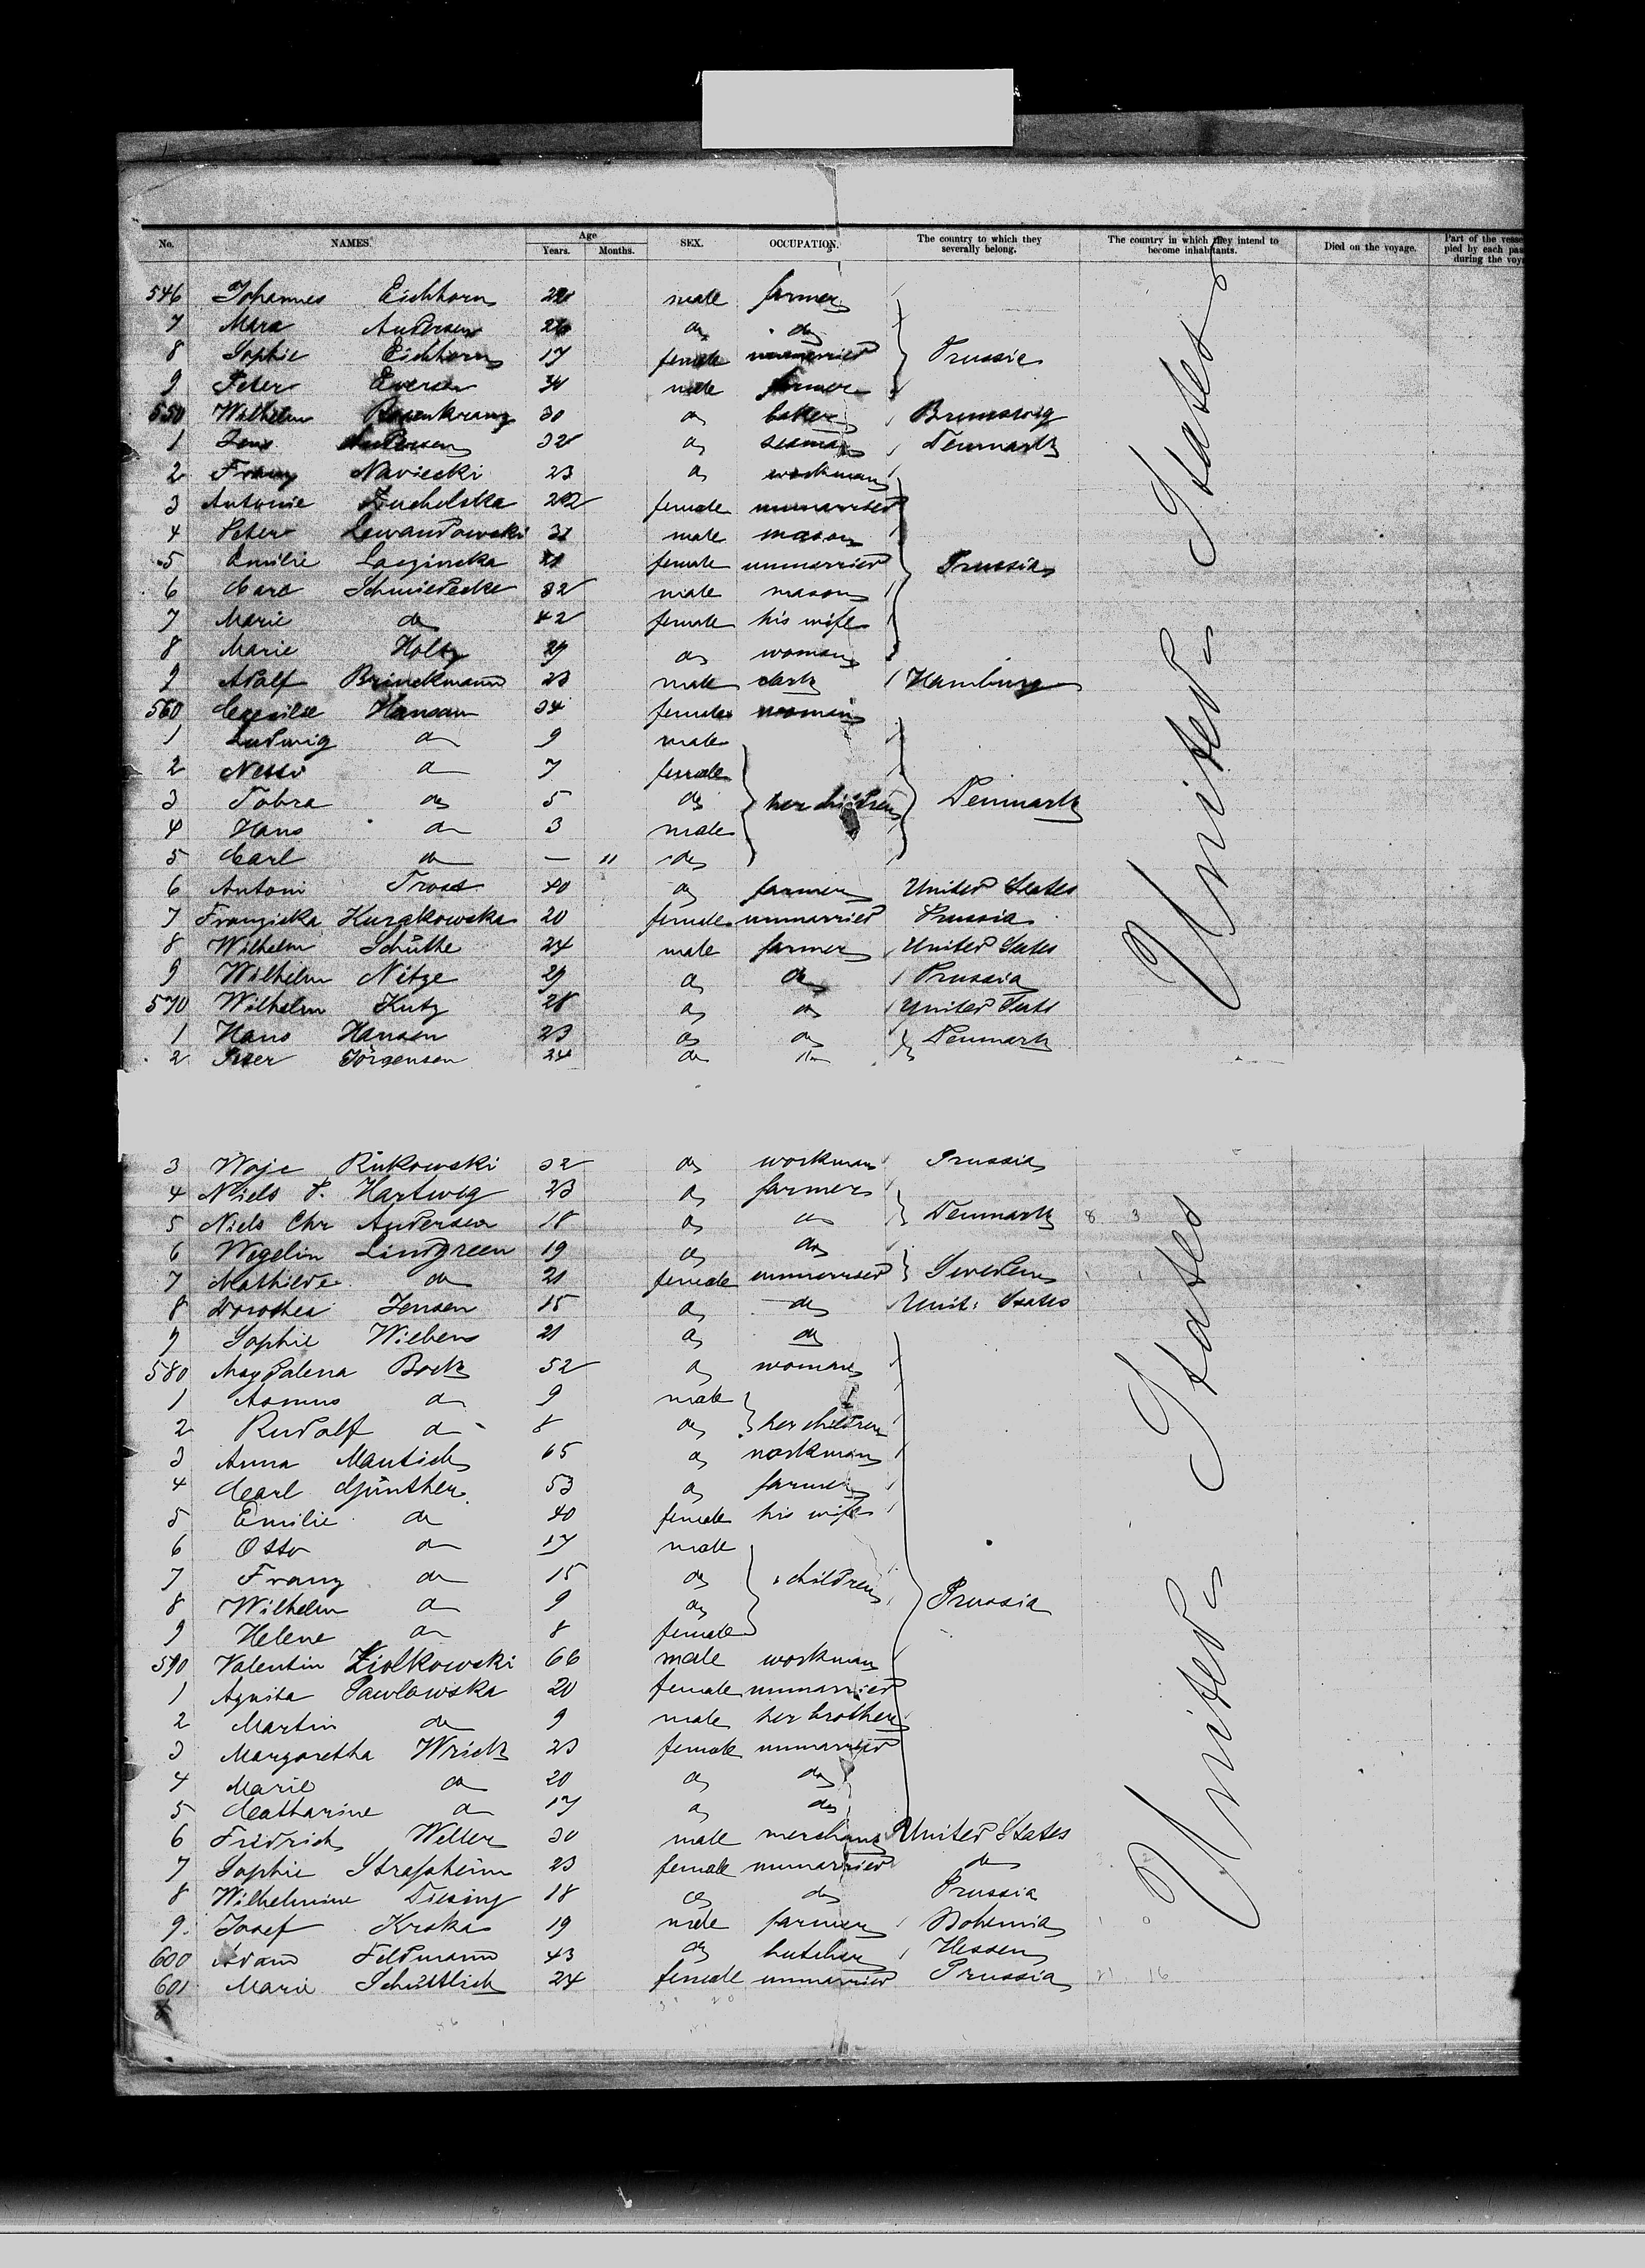 No. NAMES. Age Years. Months. SEX. OCCUPATION. The country to which they severally belong. The country in which they intend to become inhabitants. Died on the voyage. Part of the vesse pied by each pas during the voya
546 Johannes Eichhorn male farmer
7 Andersen 26 do do
8 Sophie Eichhorn 17 female unmarried Prussia
9 Peter male farmer
550 Wilhelm Rosenkranz 30 do baker Brunswig
1 Jens Andersen 32 do seaman Denmark
2 Franz Naviecki 23 do workman
3 Antonie Zuchelska 22 female unmarried
4 Peter Lewandowski 31 male mason
5 Emilie Laczinska 21 female unmarried Prussia
6 Carl Schmiedecke 32 male mason
7 Marie do 42 female his wife
8 Marie Holtz 29 do woman
9 Adolf Brinckmann 23 male clerk Hamburg
560 Hansen 34 female woman
1 Ludwig do 9 male
2 do 7 female
3 do 5 do her children Denmark
4 Hans do 3 male
5 Carl do — 11 do
6 Antoni Trost 40 do farmer United States
7 Franziska Kurzkowska 20 female unmarried Prussia
8 Wilhelm Schütte 24 male farmer United States
9 Wilhelm Nitze 29 do do Prussia
570 Wilhelm Kutz 28 do do United Stats
1 Hans Hansen 23 do do Denmark
2 Peter Jörgensen 24 do do
United States
3 Woje Rukowski 32 do workman Prussia
4 Niels P. Hartwig 23 do farmer
5 Niels Chr Andersen 18 do do Denmark 8 3
6 Wegelin Lindgreen 19 do do
7 Mathilde do 21 female unmarried Sweden
8 Dorothea Jensen 15 do do Unit: States
9 Sophie Wiebens 21 do do
580 Magdalena Bock 52 do woman
1 Asmus do 9 male
2 Rudolf do 8 do her children
3 Anna 65 do workman
4 Carl Günther 53 do farmer
5 Emilie do 40 female his wife
6 Otto do 17 male
7 Franz do 15 do children
8 Wilhelm do 9 do Prussia
9 Helene do 8 female
590 Valentin Ziolkowski 66 male workman
1 Agnita Pawlowska 20 female unmarried
2 Martin do 9 male her brother
3 Margaretha Wrick 23 female unmarried
4 Marie do 20 do do
5 Catharine do 17 do do
6 Fridrich Weller 30 male merchant United States
7 Sophie Strassheim 23 female unmarried do
8 Wilhelmine Diesing 18 do do Prussia
9. Josef Krska 19 male farmer Bohemia
600 Adam Feldmann 43 do butcher Hessen
601 Marie Schüttlick 24 female unmarried Prussia 21 16
United States